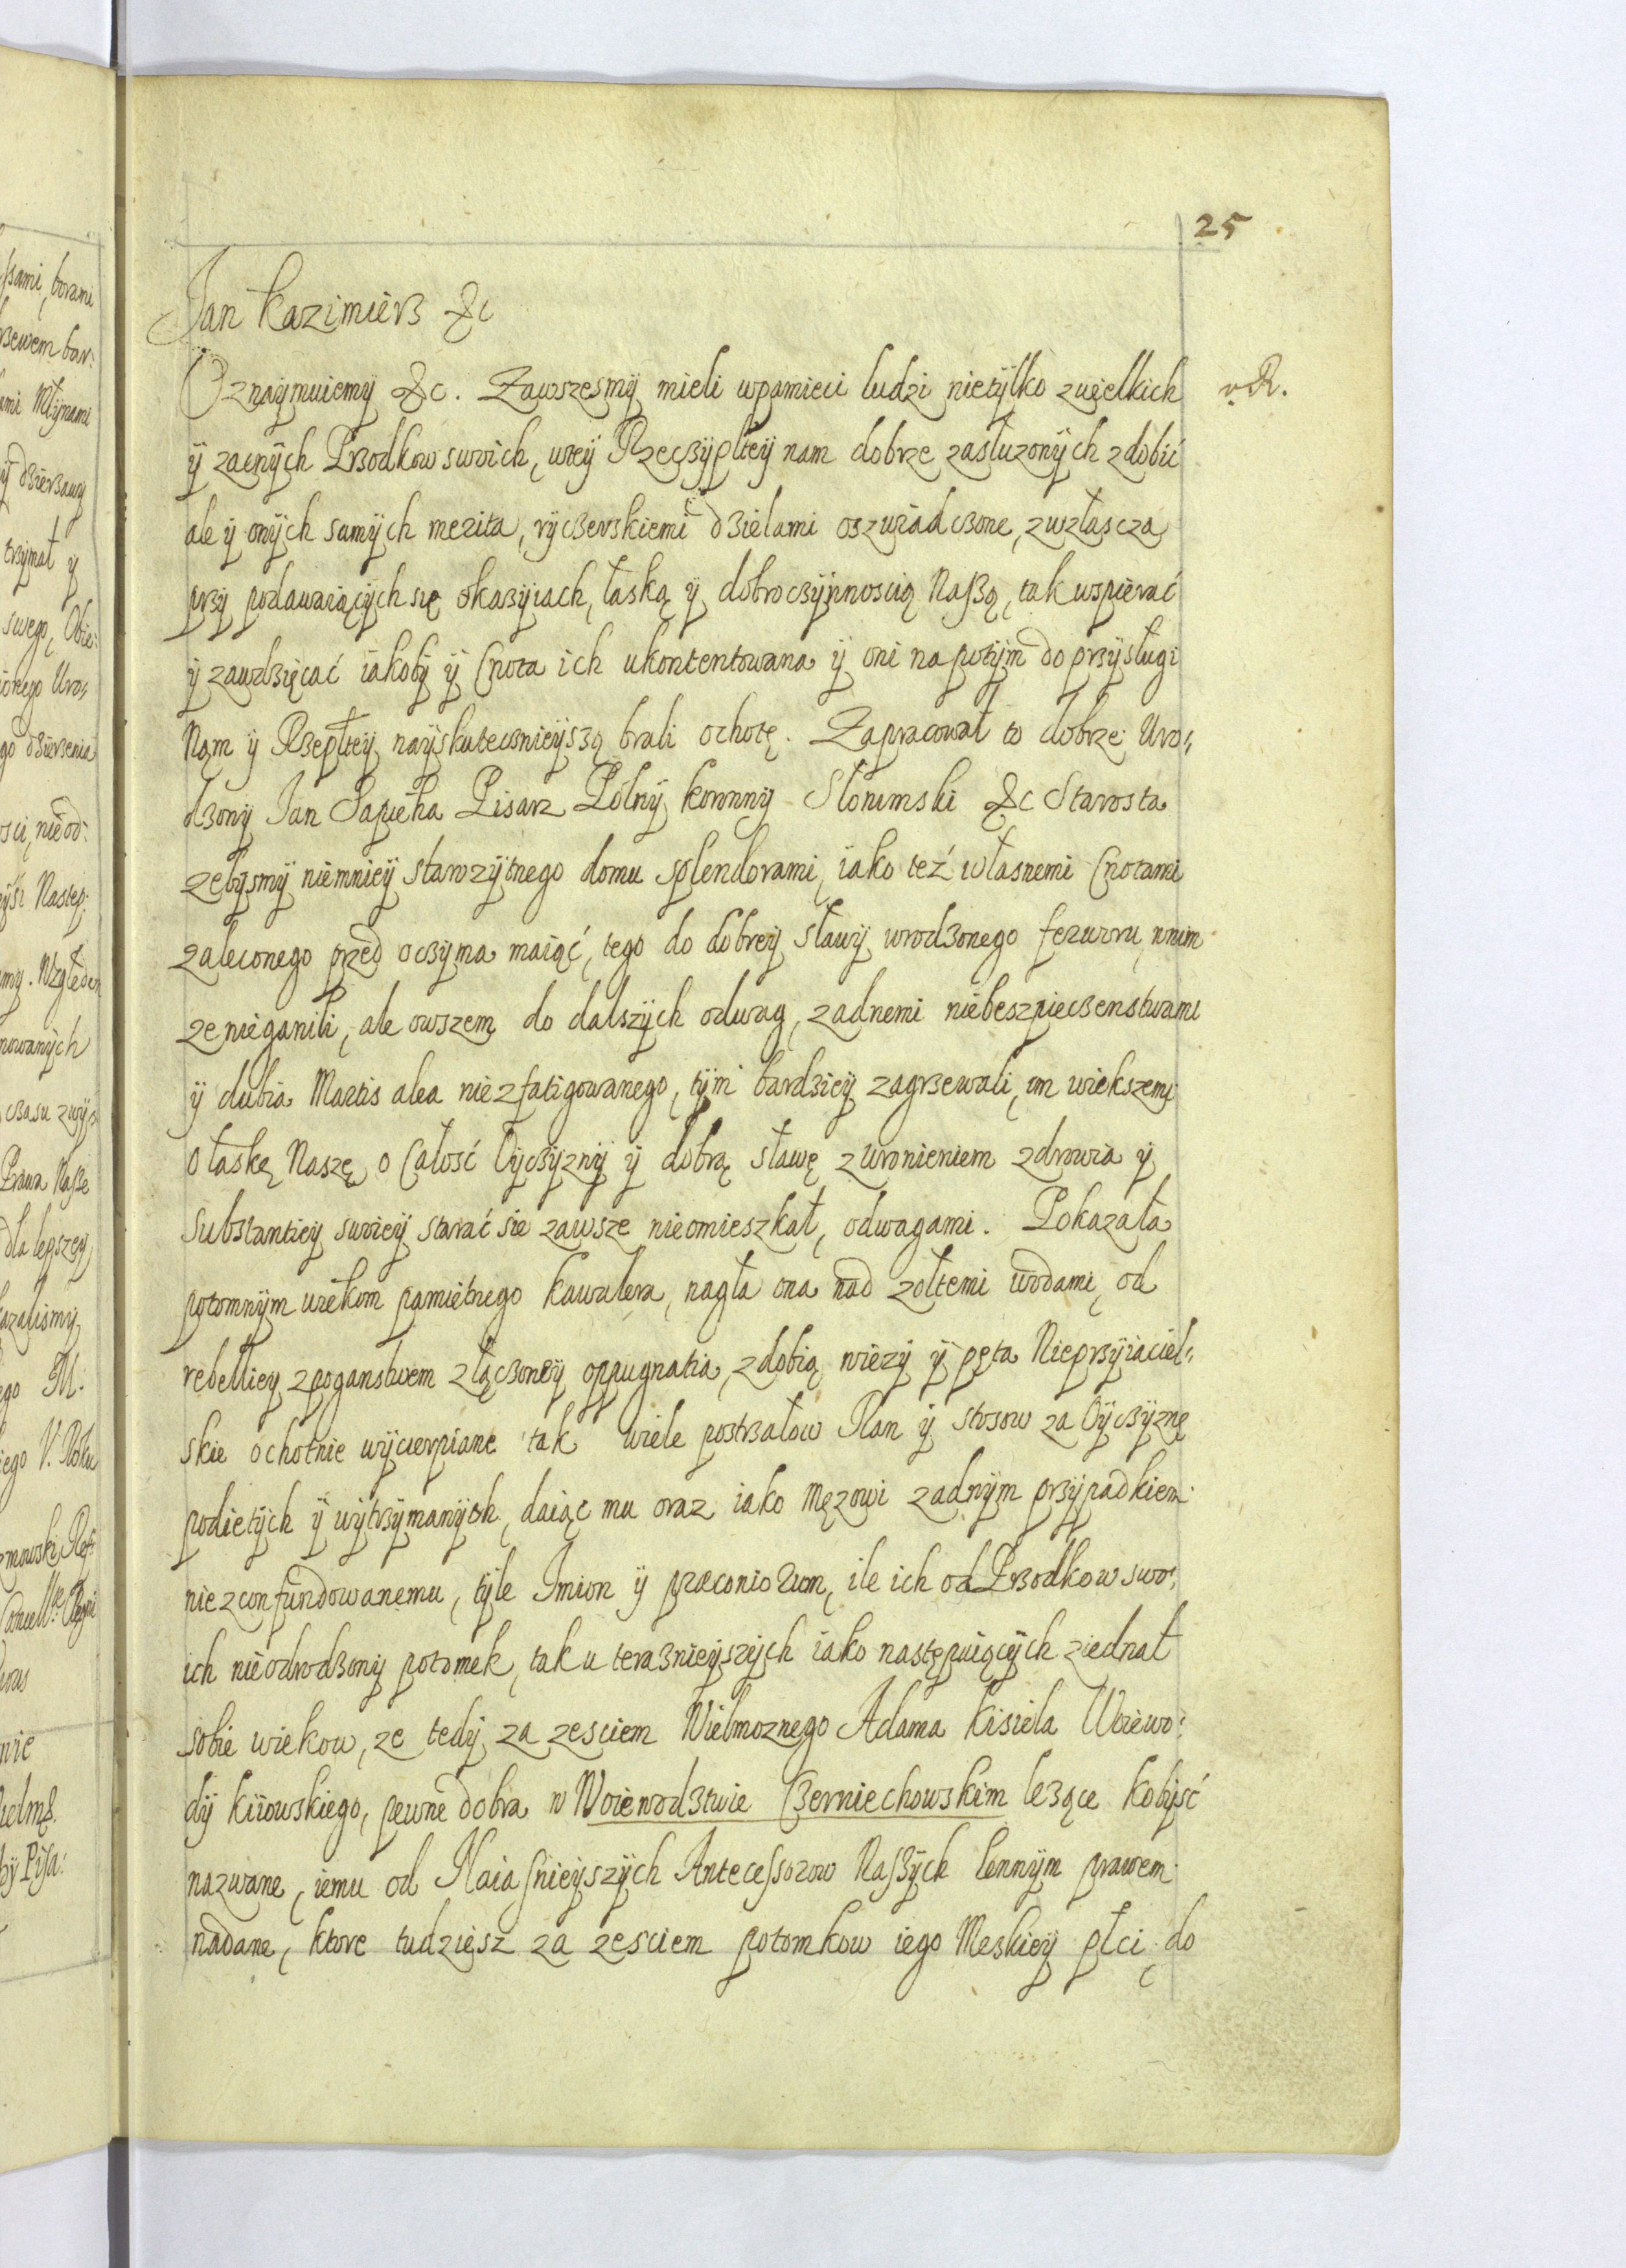 25
Jan Kazimierz &c
Oznaÿmuiemÿ &c. Zawszesmÿ mieli wpamieci ludzi nietÿlko zwielkich
v. R.
ÿ zacnÿch Przodkow swoich, wteÿ Rzeczÿpltey nam dobrze zasłuzonÿch zdobić
ale ÿ onÿch samÿch merita, rÿczerskiemi dzielami oszwiadczone, zwzłascza
przÿ podawaiącÿch się okazÿiach, łaską ÿ dobroczÿnnoscią Naszą, tak wspierać
ÿ zawdzięcać iakobÿ ÿ Cnota ich ukontentowana ÿ oni napotÿm do przÿsługi
Nąm ÿ Rzeplteÿ naÿskutecznieÿszą brali ochotę. Zapracował to dobrze Uro,,
dzonÿ Jan Sapieha Pisarz Polnÿ koronnÿ Słonimski &c Starosta
zebÿsmÿ niemnieÿ starozÿtnego domu splendorami, iako też własnemi Cnotami
zaleconego przed oczÿma maiąć, tego do dobreÿ sławÿ wrodzonego ferworu wnim
ze nieganili, ale owszem do dalszÿch odwag, zadnemi niebeszpieczenstwami
ÿ dubia Martis alea niezfatigowanego, tÿm bardzieÿ zagrzewali, im wiekszemi
o łaskę Naszę, o Całość Oÿczÿznÿ ÿ dobrą sławę zuronieniem zdrowia ÿ
substantieÿ swoieÿ starać sie zawsze nieomieszkał, odwagami. Pokazała
potomnÿm wiekom pamiętnego Kawalera, nagła ona nad zołtemi wodami, od
rebellieÿ zpoganstwem złączoneÿ oppugnatia, zdobią wiezÿ ÿ pęta Nieprzÿiaciel,,
skie ochotnie wÿcierpiane tak wiele postrzałow Ran ÿ stosow za Oÿczÿznę
podietÿch ÿ wÿtrzÿmanÿch, daiąc mu oraz iako Męzowi zadnÿm przÿpadkiem
niezconfundowanemu, tÿle Imion ÿ praeconiorum, ile ich od Przodkow swo,,
ich nieodrodzonÿ potomek, tak u terazniejszÿch iako następuiącÿch ziednał
sobie wiekow, ze tedÿ za zesciem Wielmoznego Adama Kisiela Woiewo:
dÿ kiiowskiego, pewne dobra w Woiewodztwie Czerniechowskim lezące Kobÿsć
nazwane, iemu od Naiasnieÿszÿch Antecessorow Naszÿch lennÿm prawem
nadane, ktore tudziesz za zesciem potomkow iego Meskieÿ płci do